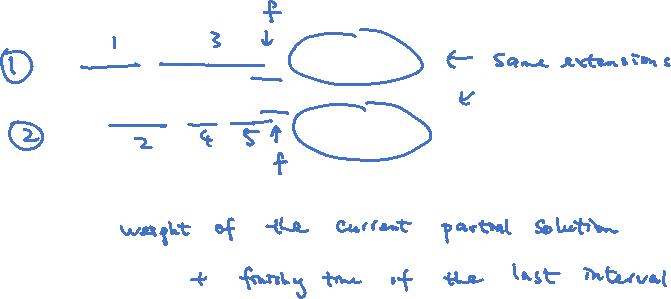 f
1 3
① ← same extensions
② ↙
2 4 5 ↑
f
weight of the current partial solution
+ finishing time of the last interval